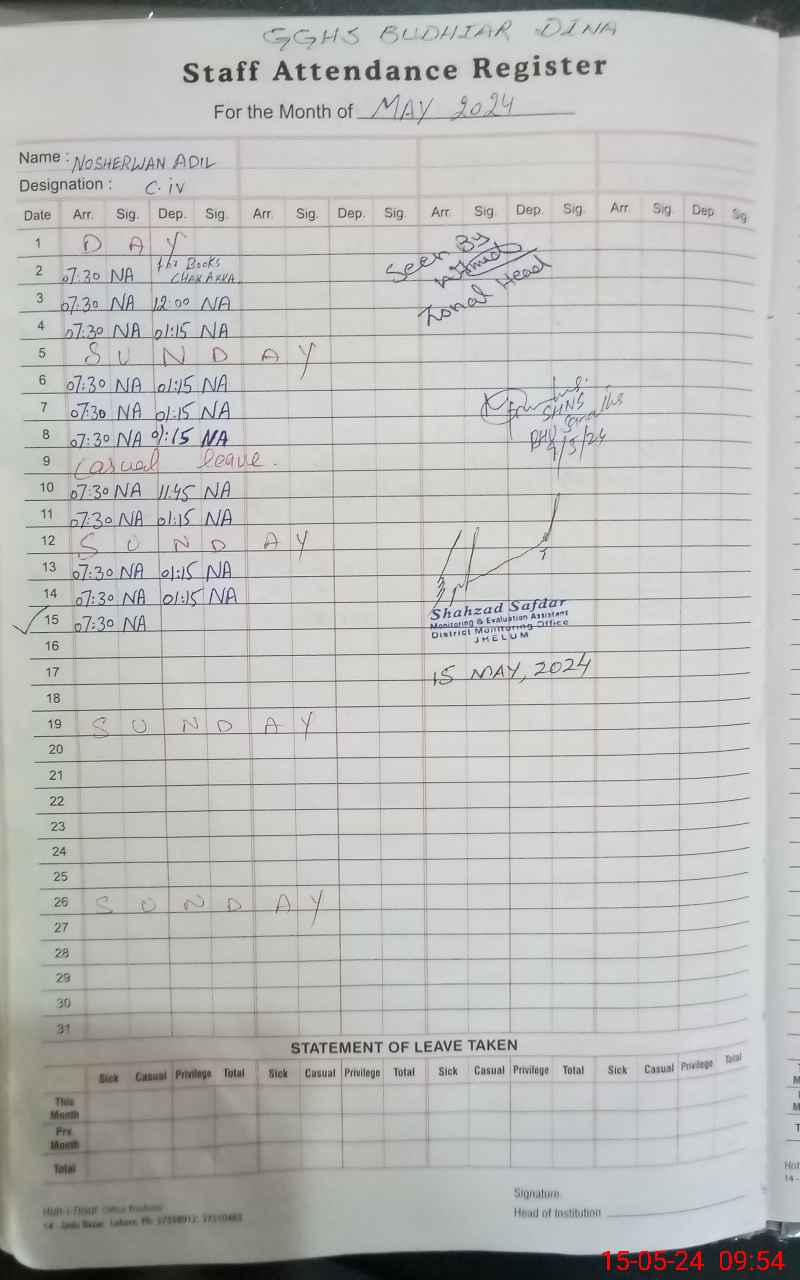 GGHS BUDHIAR DINA
Staff Attendance Register
For the Month of MAY 2024
Name : NOSHERWAN ADIL
Designation : C.iv
Date Arr. Sig. Dep. Sig. Arr. Sig. Dep. Sig. Arr. Sig. Dep. Sig. Arr. Sig. Dep. Sig.
1 D A Y
2 07:30 NA for Books
3 07:30 NA 12:00 NA
4 07:30 NA 01:15 NA
5 S U N D A Y
6 07:30 NA 01:15 NA
7 07:30 NA 01:15 NA
8 07:30 NA 01:15 NA
9 Casual leave.
10 07:30 NA 11:45 NA
11 07:30 NA 01:15 NA
12 S U N D A Y
13 07:30 NA 01:15 NA
14 07:30 NA 01:15 NA
15 07:30 NA
16
17
18
19 S U N D A Y
20
21
22
23
24
25
26 S U N D A Y
27
28
29
30
31
Seen By
Zonal Head
SHNS
BHU
9/5/24
Shahzad Safdar
Monitoring & Evaluation Assistant
District Monitoring Office
JHELUM
15 MAY, 2024
STATEMENT OF LEAVE TAKEN
Sick Casual Privilege Total Sick Casual Privilege Total Sick Casual Privilege Total Sick Casual Privilege Total
This Month
Prv. Month
Total
Signature
Head of Institution
15-05-24 09:54